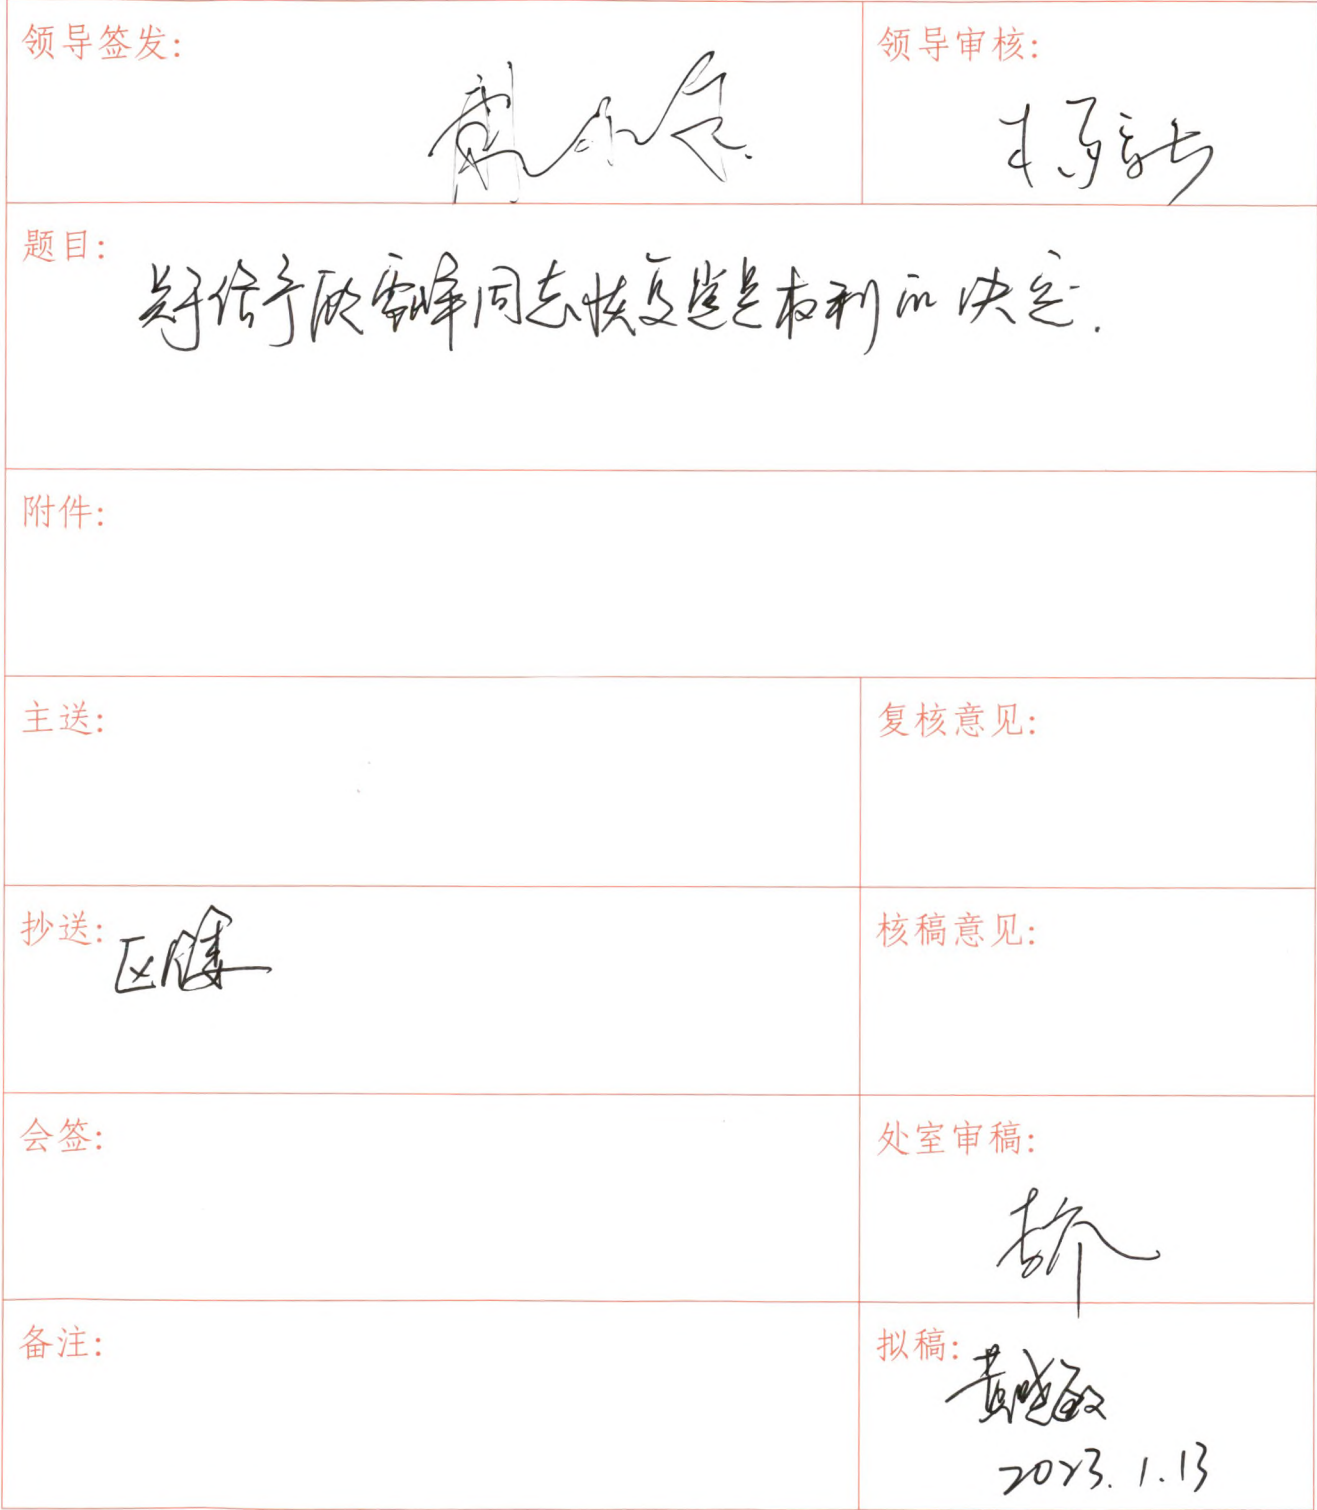 领导签发:
领导审核:
题目:
关于给予欧雪峰同志恢复党员权利的决定.
附件:
主送:
复核意见:
抄送:
核稿意见:
会签:
处室审稿:
备注:
拟稿:
黄晓敏
2023.1.13